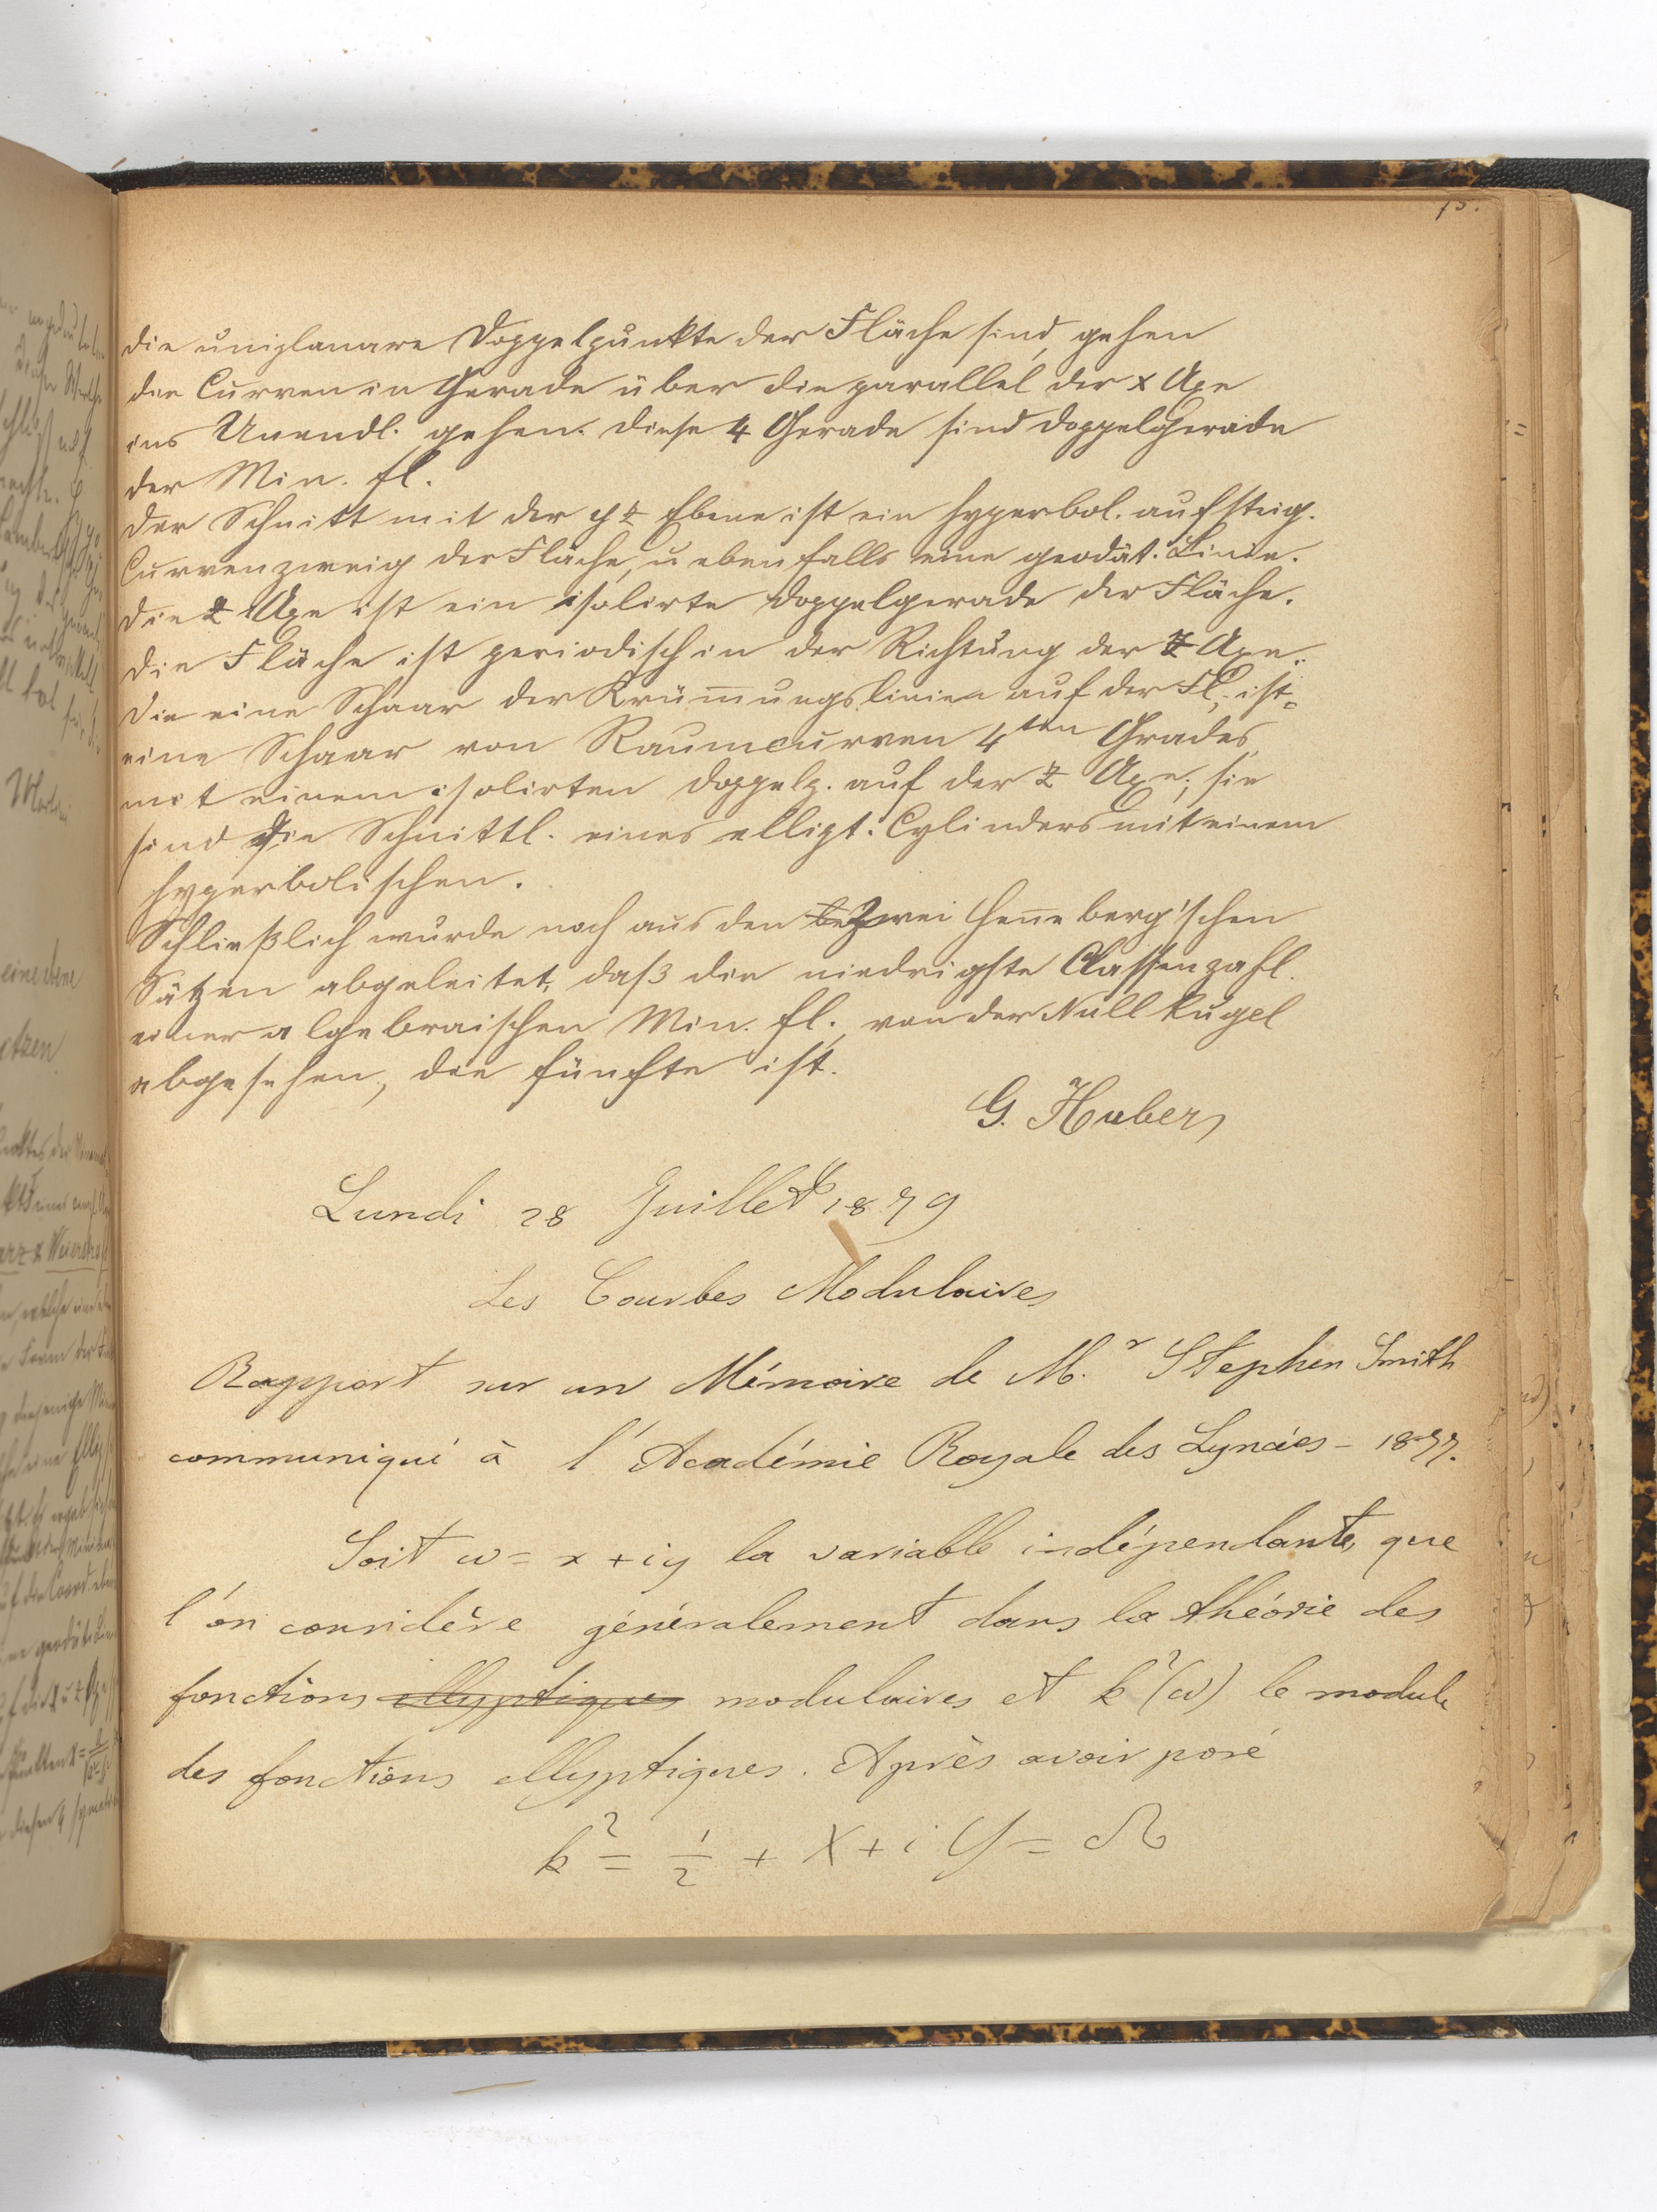 15.
die uniplanare Doppelpunkte der Fläche sind, gehen
die Curven in Gerade über die parallel der x Axe
ins Unendl. gehen. Diese 4 Gerade sind Doppelgerade
der Min. fl.
Der Schnitt mit der yz Ebene ist ein hyperbol. aufsteig.
Curvenzweig der Fläche, u ebenfalls eine geodät. Linie.
Die z Axe ist ein isolirte Doppelgerade der Fläche.
Die Fläche ist periodisch in der Richtung der z Axe.
Die eine Schaar der Krüm̄ungslinien auf der Fl. ist
eine Schaar von Raumcurven 4ten Grades,
mit einem isolirten Doppelp. auf der z Axe; sie
sind die Schnittl. eines ellipt. Cylinders mit einem
hyperbolischen.
Schließlich wurde noch aus den be zwei Hen̄eberg'schen
Sätzen abgeleitet, daß die niedrigste Classenzahl
einer algebraischen Min. fl., von der Nullkugel
abgesehen, die fünfte ist.
G. Huber
Lundi 28 Juillet 1879
Les Courbes Modulaires
Rapport sur un Mémoire de M.r Stephen Smith
communiqué à l'Académie Royale des Lyncées - 1877.
Soit ω = x + iy la variable indépendante, que
l'on considère généralement dans la théorie des
fonctions ellyptiques modulaires et k²(ω) le module
des fonctions ellyptiques. Après avoir posé
k² = 1/2 + X + i Y = Ω